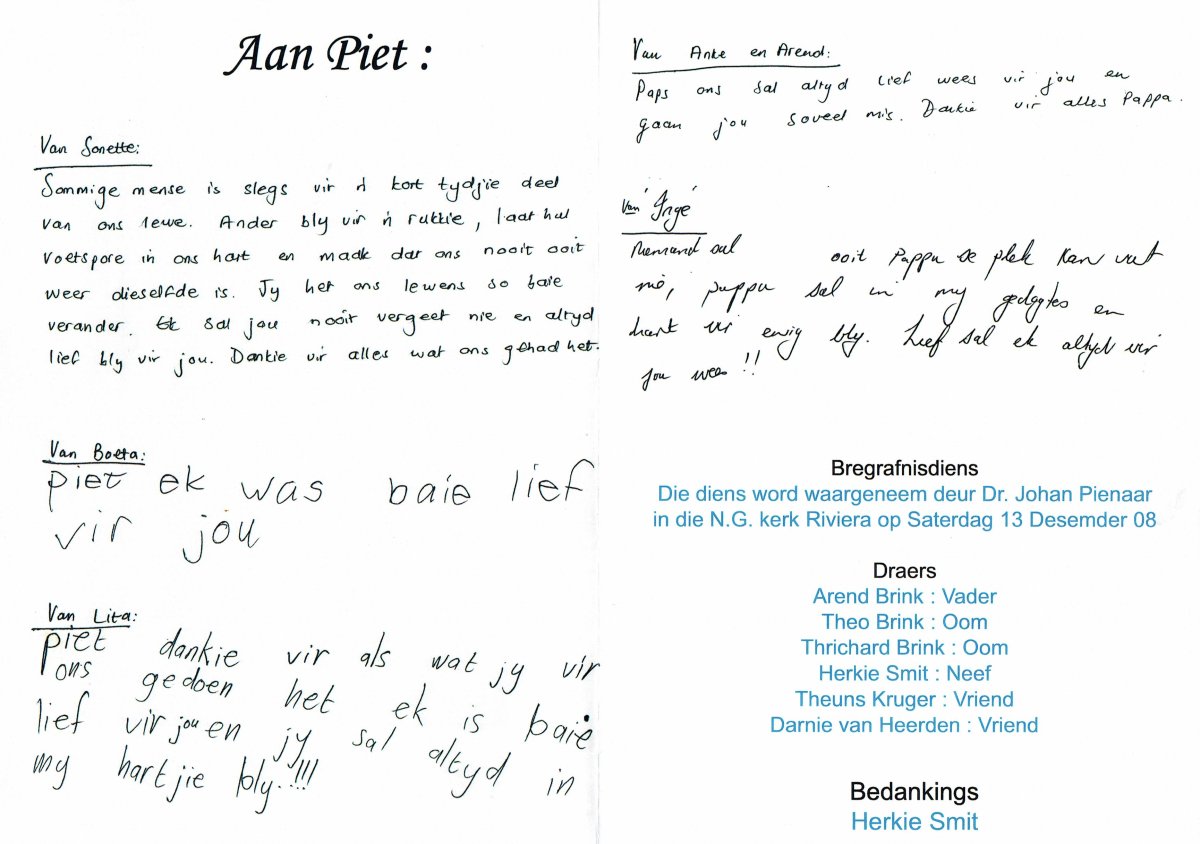 Aan Piet :
Van Sonette:
Sommige mense is slegs vir 'n kort tydjie deel
van ons lewe. Ander bly vir 'n rukkie, laat hul
voetspore in ons hart en maak dat ons nooit ooit
weer dieselfde is. Jy het ons lewens so baie
verander. Ek sal jou nooit vergeet nie en altyd
lief bly vir jou. Dankie vir alles wat ons gehad het.
Van Boeta:
piet ek was baie lief
vir jou
Van Lita:
piet dankie vir als wat jy vir
ons gedoen het ek is baie
lief vir jou en jy sal altyd in
my hartjie bly.!!!
Van Anke en Arend:
Paps ons sal altyd lief wees vir jou en
gaan jou soveel mis. Dankie vir alles Pappa.
Van Ingé
Niemand sal ooit Pappa se plek kan vat
nie, pappa sal in my gedagtes en
hart vir ewig bly. Lief sal ek altyd vir
jou wees !!
Bregrafnisdiens
Die diens word waargeneem deur Dr. Johan Pienaar
in die N.G. kerk Riviera op Saterdag 13 Desemder 08
Draers
Arend Brink : Vader
Theo Brink : Oom
Thrichard Brink : Oom
Herkie Smit : Neef
Theuns Kruger : Vriend
Darnie van Heerden : Vriend
Bedankings
Herkie Smit